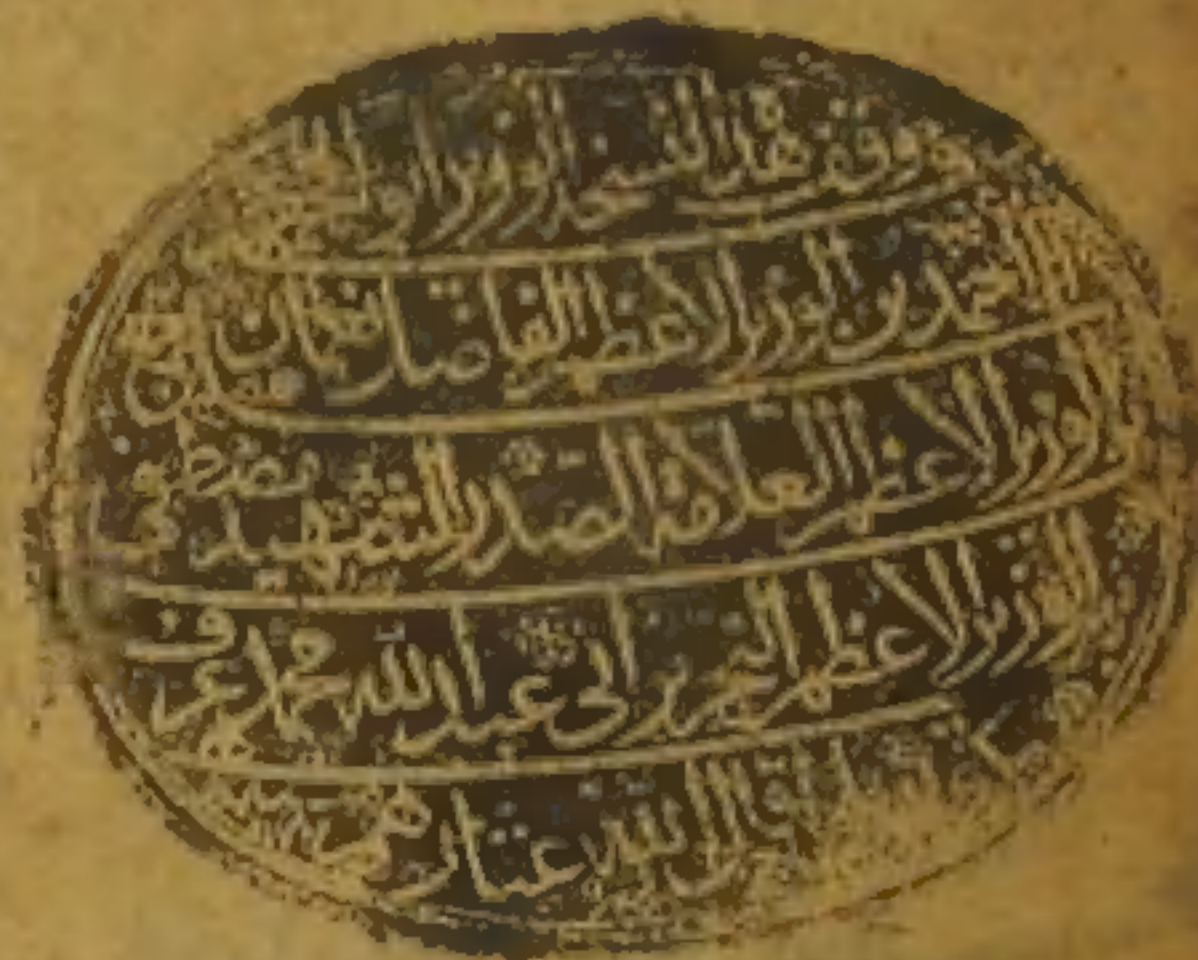 وقف هذه النسخة الوزير ابو
احمد بن الوزير الاعظم الفاضل نعمان بن
الوزير الاعظم العلامة الصدر الشهيد مصطفى
بن الوزير الاعظم النحرير ابي عبد الله محمد عرف
اقال الله عثارهم